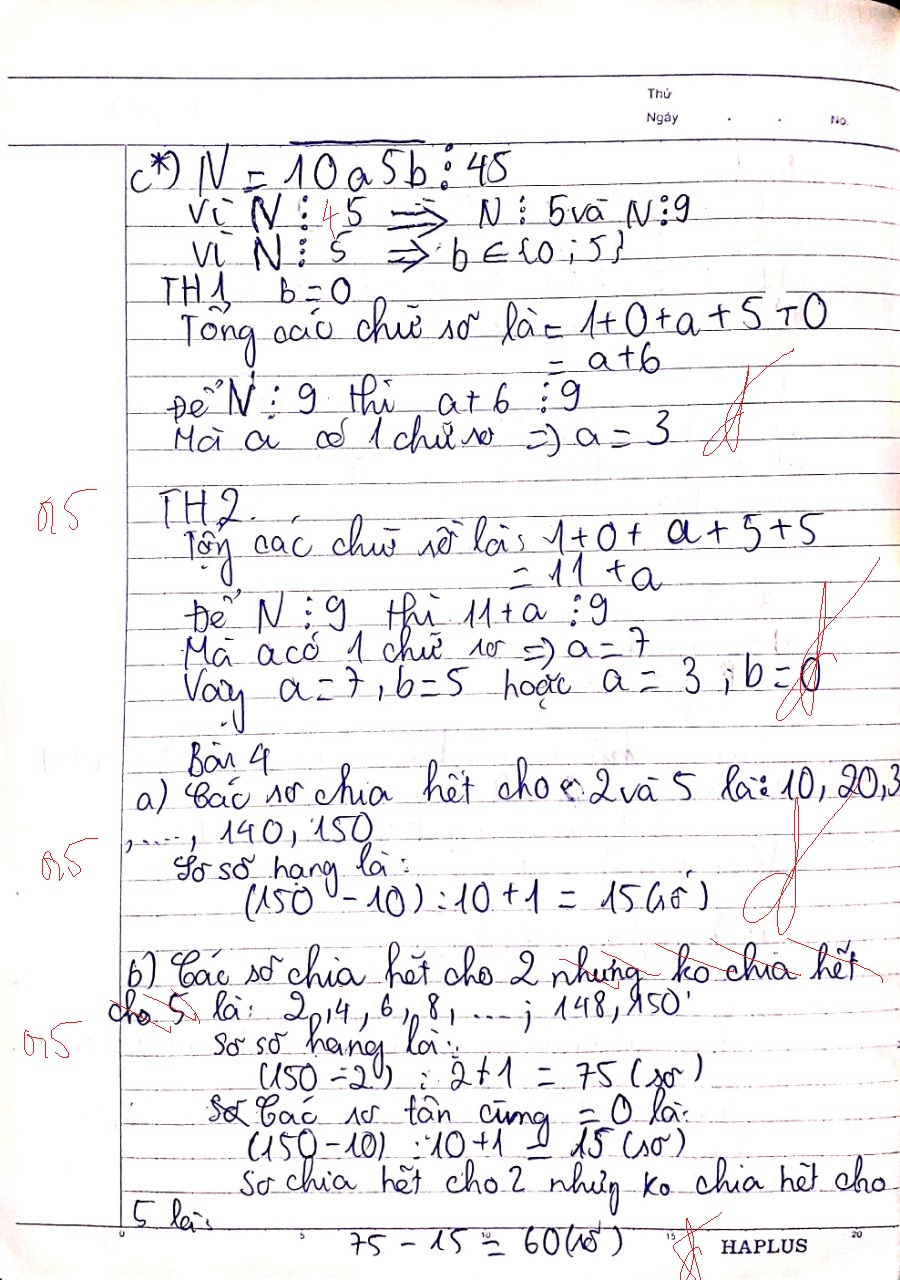 Thứ
Ngày . . No.
c*) N = 10a5b ⋮ 45
Vì N ⋮ 45 => N ⋮ 5 và N ⋮ 9
Vì N ⋮ 5 => b ∈ {0 ; 5}
TH1 b = 0
Tổng các chữ số là = 1+0+a+5+0
= a+6
Để N ⋮ 9 thì a+6 ⋮ 9
Mà a có 1 chữ số => a = 3
0,5
TH2.
Tổng các chữ số là: 1+0+a+5+5
= 11 + a
Để N ⋮ 9 thì 11+a ⋮ 9
Mà a có 1 chữ số => a = 7
Vậy a = 7, b = 5 hoặc a = 3 ; b = 0
Bài 4
a) Các số chia hết cho 2 và 5 là: 10, 20, 3
, ...., 140, 150
0,5
Số số hạng là:
(150 - 10) : 10 + 1 = 15 (số)
b) Các số chia hết cho 2 nhưng ko chia hết
cho 5 là: 2, 4, 6, 8, ....; 148, 150
0,5
Số số hạng là:
(150 - 2) : 2 + 1 = 75 (số)
Các số tận cùng = 0 là:
(150 - 10) : 10 + 1 = 15 (số)
Số chia hết cho 2 nhưng ko chia hết cho
5 là:
75 - 15 = 60 (số)
0 5 10 15 HAPLUS 20